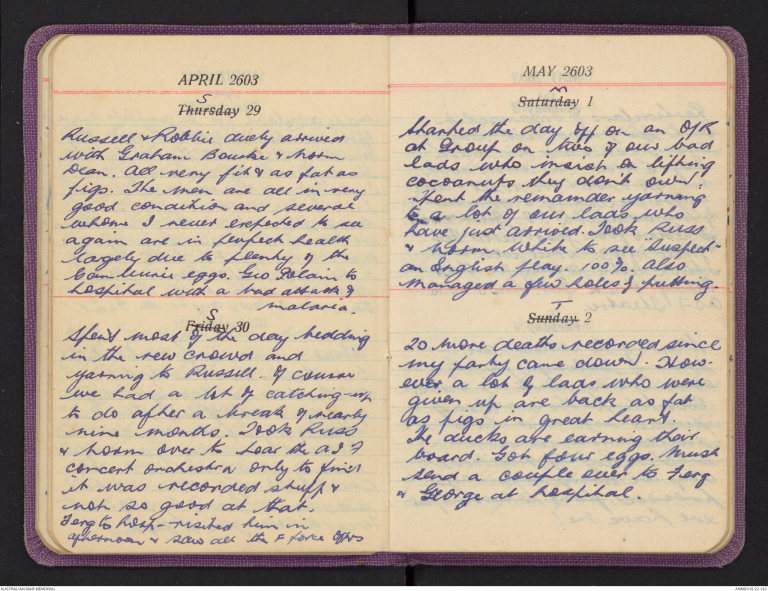 APRIL 2603
S
Thursday 29
Russell & Robbie duely arrived
with Graham Bourke & Norm
Dean. All very fit & as fat as
figs. The men are all in very
good condition and several
whom I never expected to see
again are in perfect health
largely due to plenty of the
Cam Murie eggs. Geo Palain to
hospital with a bad attack of
malaria.
S
Friday 30
Spent most of the day bedding
in the new crowd and
yarning to Russell. Of course
we had a lot of catching-up
to do after a break of nearly
nine months. Took Russ
& Norm over to hear the A I F
concert orchestra only to find
it was recorded stuff &
not so good at that.
Ferg to hosp - visited him in
afternoon & saw all the F Force Offrs
MAY 2603
M
Saturday 1
Started the day off on an O/R
at Group on two of our bad
lads who insist on lifting
cocoanuts they don't own.
Spent the remainder yarning
to a lot of our lads who
have just arrived. Took Russ
& Norm White to see Suspect -
an English play. 100%. Also
managed a few holes of putting.
T
Sunday 2
20 more deaths recorded since
my party came down. How-
ever a lot of lads who were
given up are back as fat
as pigs in great heart.
The ducks are earning their
board. Got four eggs. Must
send a couple over to Ferg
& George at hospital.
AUSTRALIAN WAR MEMORIAL